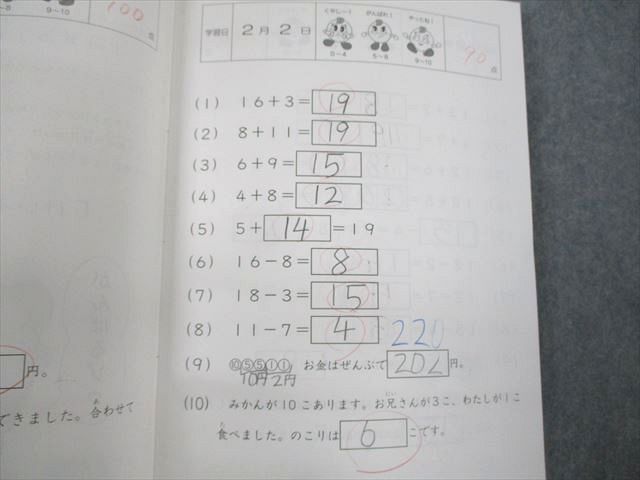 100
9〜10
点
円。
できました。合わせて
学習日 2月2日
くやしー！ がんばれ！ やったね！
0〜4 5〜8 9〜10
90 点
(1) 16+3=19
(2) 8+11=19
(3) 6+9=15
(4) 4+8=12
(5) 5+14=19
(6) 16-8=8
(7) 18-3=15
(8) 11-7=4
220
(9) ⑩⑤⑤①① お金はぜんぶで202円。
10円2円
(10) みかんが10こあります。お兄さんが3こ、わたしが1こ
食べました。のこりは6こです。